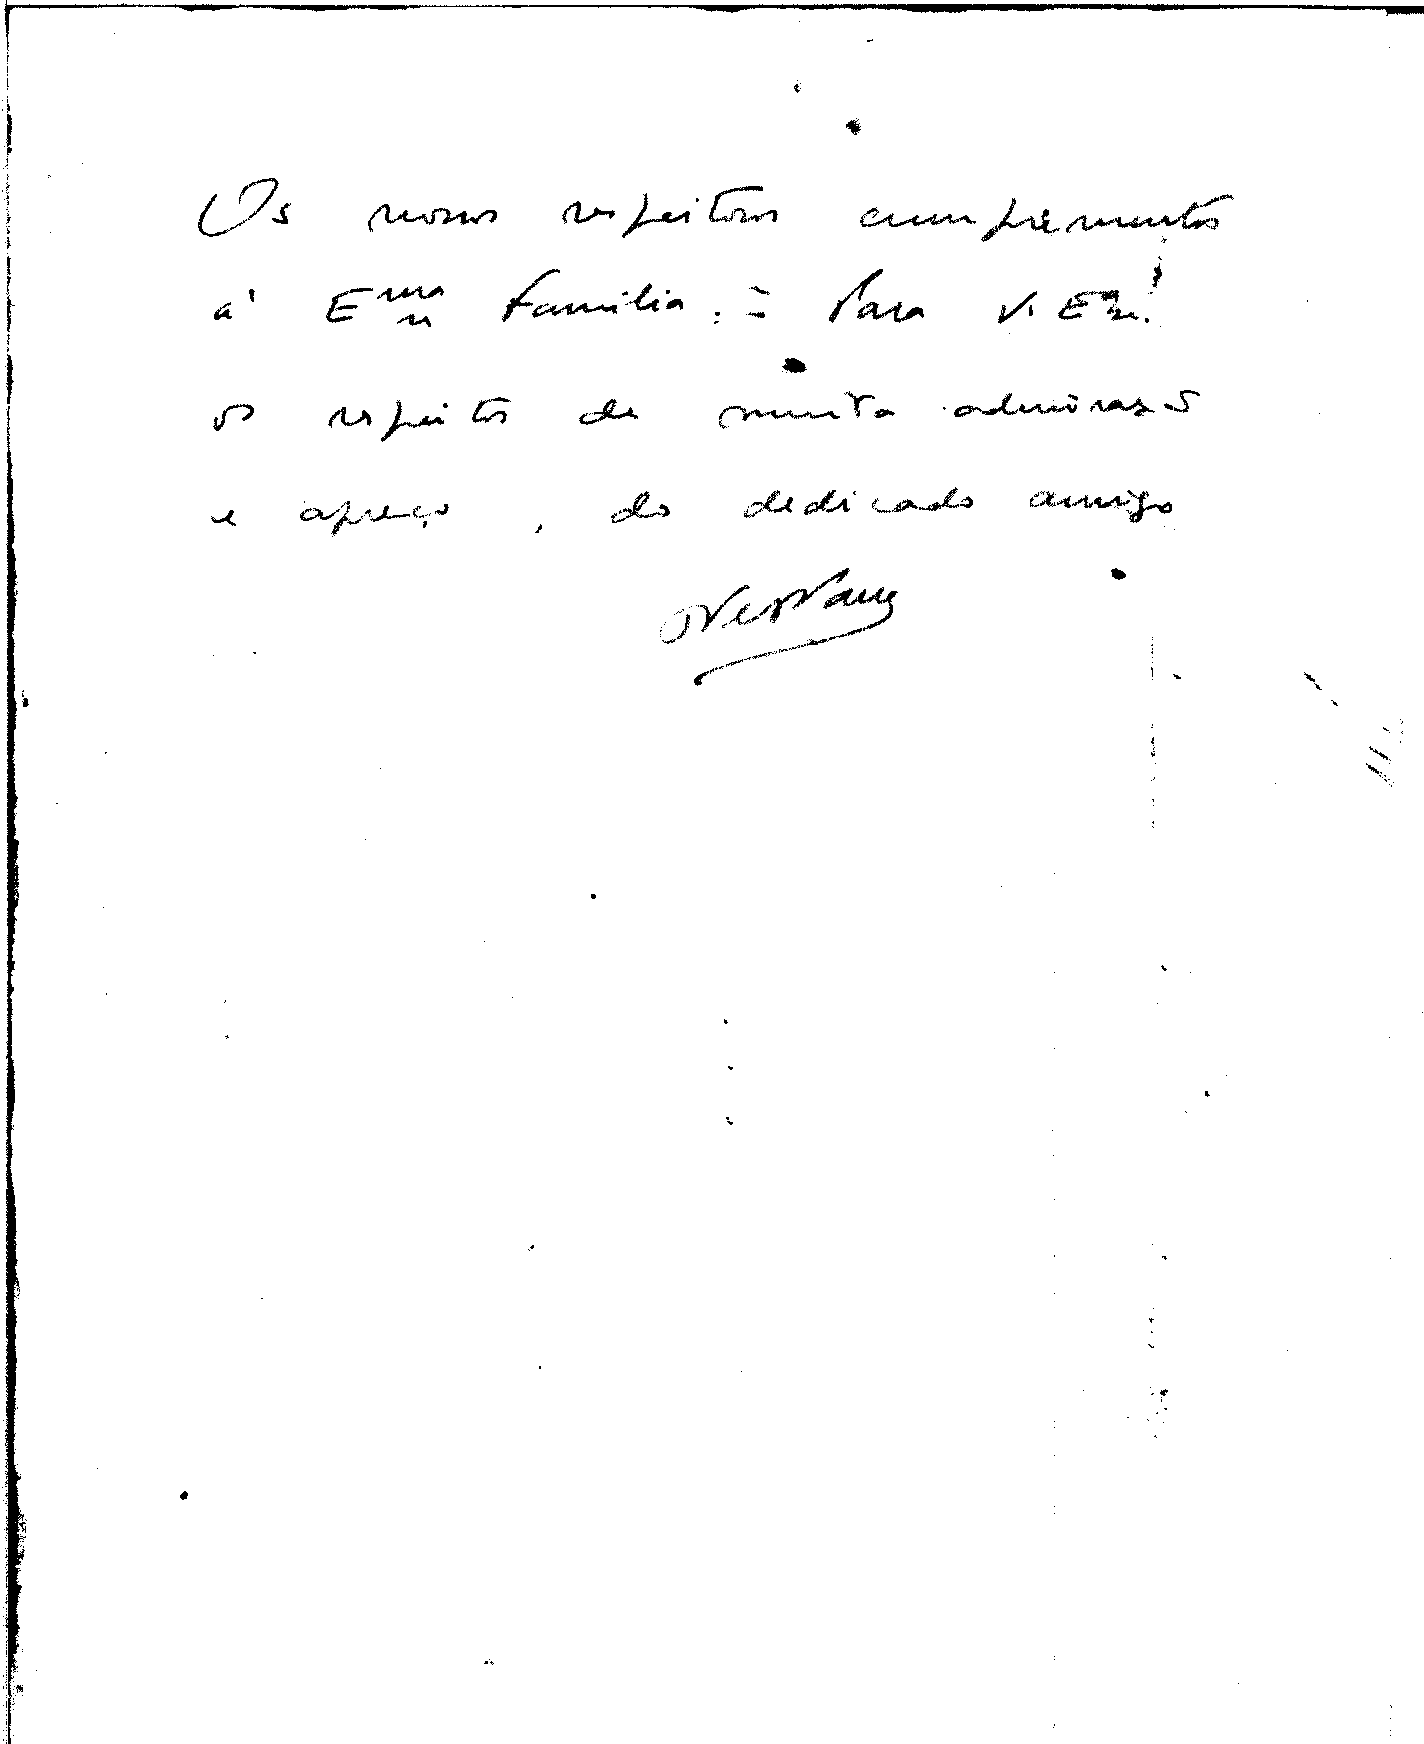 Os nossos respeitosos cumprimentos
à Exma Familia. = Para V. Exa.
os respeitos de muita admiração
e apreço, do dedicado amigo